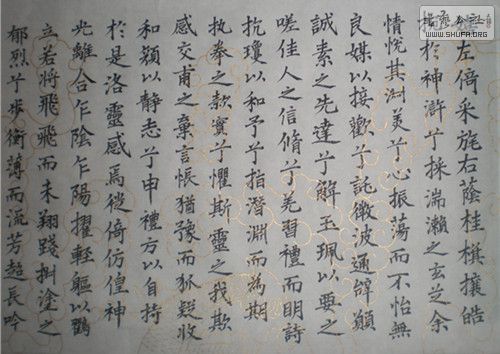 WWW.SHUFA.ORG
左倚采旄右蔭桂旗攘皓
於神滸兮採湍瀨之玄芝余
情悅其淑美兮心振蕩而不怡無
良媒以接歡兮託微波通辭願
誠素之先達兮解玉珮以要之
嗟佳人之信脩兮羌習禮而明詩
抗瓊以和予兮指潛淵而為期
執拳之款實兮懼斯靈之我欺
感交甫之棄言悵猶豫而狐疑收
和顏以静志兮申禮方以自持
於是洛靈感焉徙倚仿偟神
光離合乍陰乍陽擢輕軀以鶴
立若將飛飛而未翔踐捌塗之
郁烈兮步衡薄而流芳超長吟